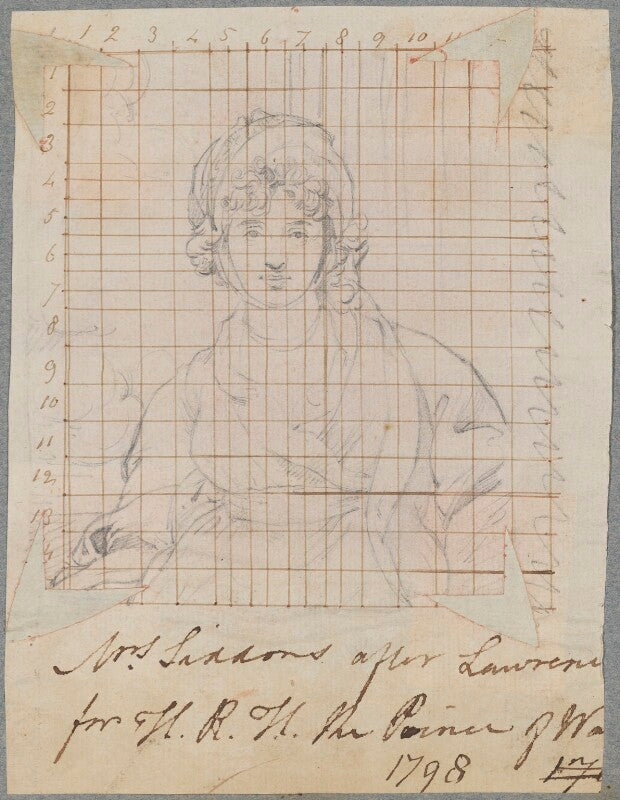 1 1 2 3 4 5 6 7 8 9 10 11
1
2
3
4
5
6
7
8
9
10
11
12
13
Mrs Siddons after Lawrenc
for H. R. H. the Prince of Wa
1798